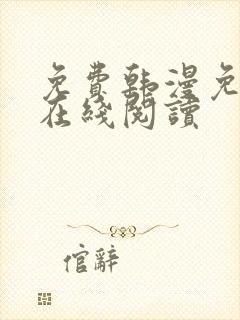 免費韩漫免
在綫閱讀
倌辭